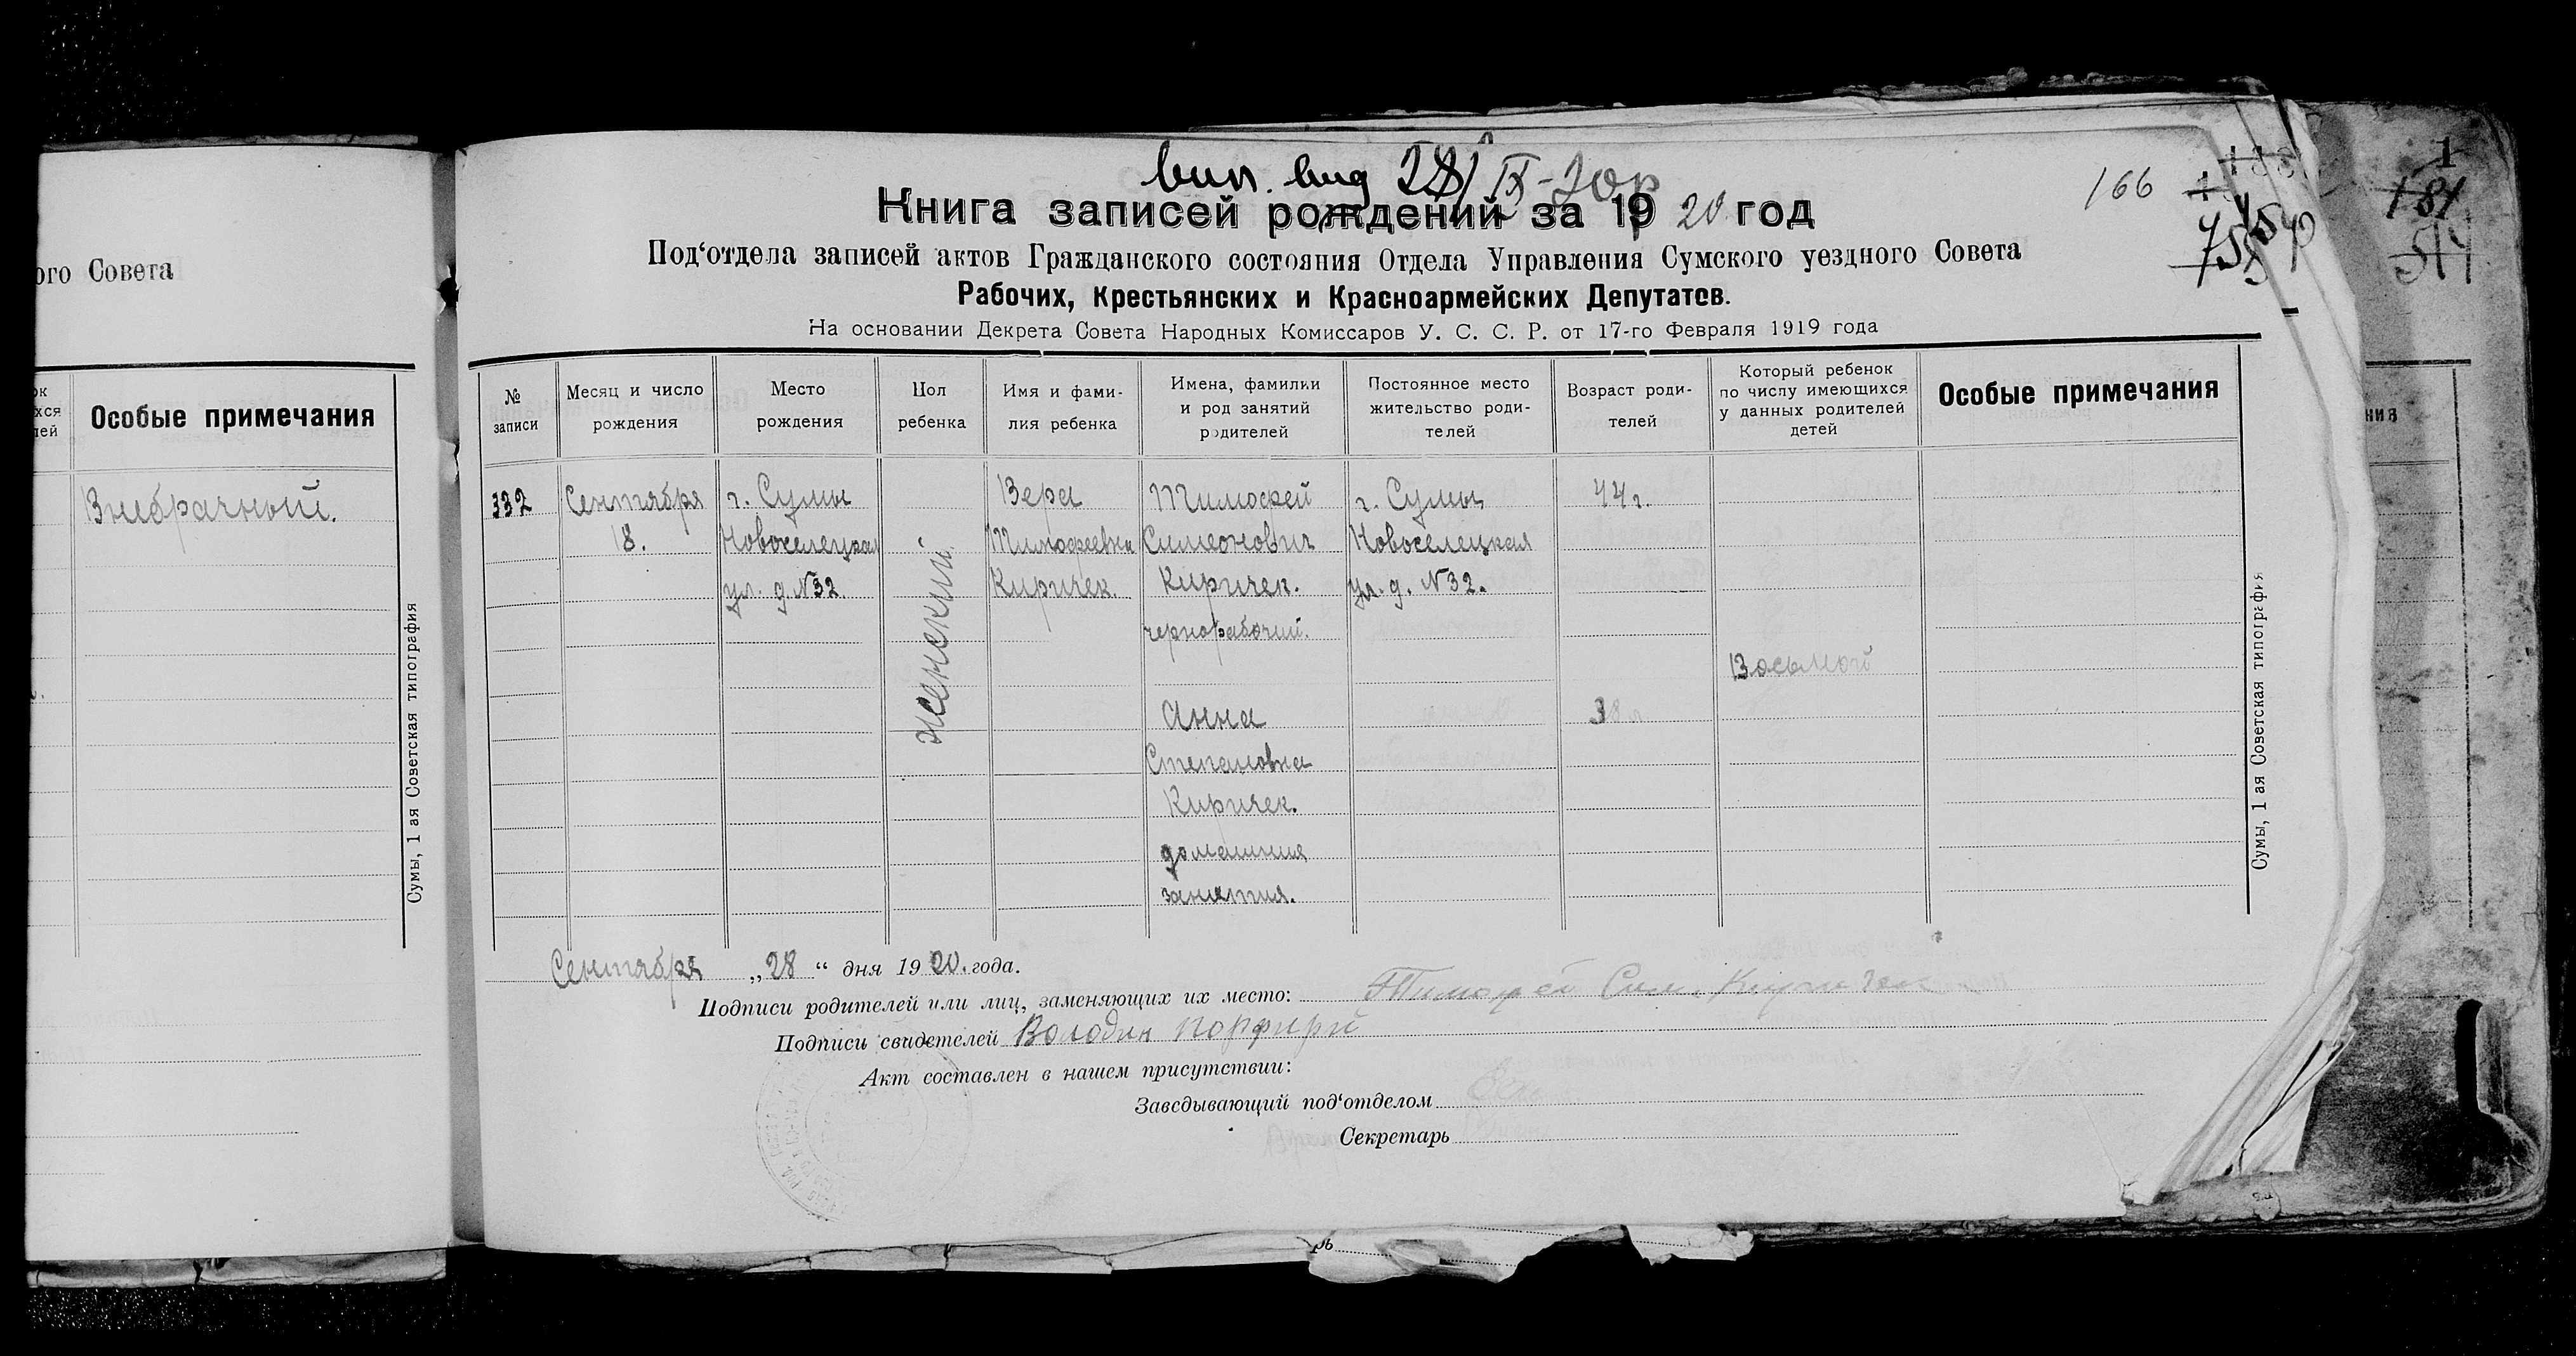 ого Совета
Особые примечания
Внебрачный.
Сумы, 1 ая Советская типография
вып. вид 28/IX-20р
166
181
Книга записей рождений за 1920 год
Под‘отдела записей актов Гражданского состояния Отдела Управления Сумского уездного Совета
Рабочих, Крестьянских и Красноармейских Депутатов.
На основании Декрета Совета Народных Комиссаров У. С. С. Р. от 17-го Февраля 1919 года
№ записи
Месяц и число рождения
Место рождения
Пол ребенка
Имя и фамилия ребенка
Имена, фамилки и род занятий родителей
Постоянное место жительство родителей
Возраст родителей
Который ребенок по числу имеющихся у данных родителей детей
Особые примечания
332
Сентября
18.
г. Сумы
Новоселецкая
ул. д. №32.
женский.
Вера
Тимофеевна
Киричек.
Тимофей
Симеонович
Киричек.
чернорабочий.
Анна
Степановна
Киричек.
домашния
занятия.
г. Сумы,
Новоселецкая
ул. д. №32.
44 г.
38 г.
Восьмой
Сумы, 1 ая Советская типография
Сентября „28“ дня 1920. года.
Подписи родителей или лиц, заменяющих их место: Тимофей Сим. Киричек
Подписи свидетелей Володин Порфирий
Акт составлен в нашем присутствии:
Заведывающий под‘отделом
Секретарь